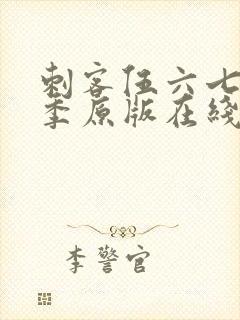 刺客伍六七
季原版在綫
李警官